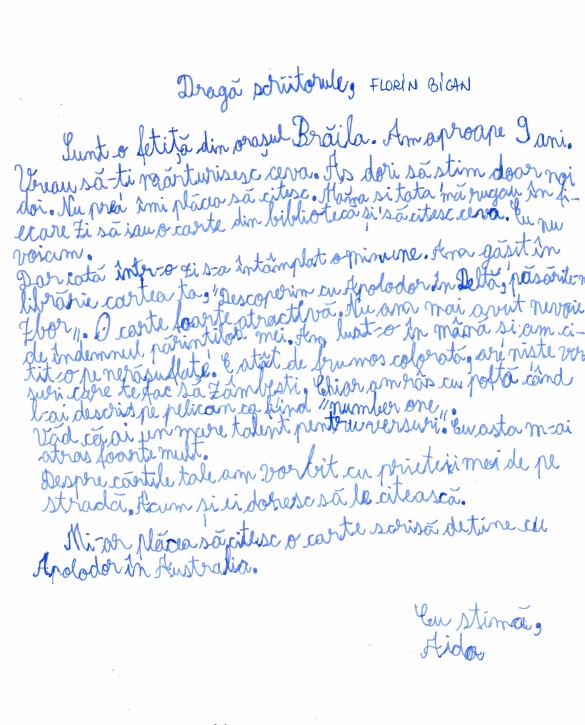 Dragă scriitorule, FLORIN BICAN
Sunt o fetiță din orașul Brăila. Am aproape 9 ani.
Vreau să-ti mărturisesc ceva. Aș dori să stim doar noi
doi. Nu prea îmi plăcea să citesc. Mama si tata mă rugau în fi-
ecare zi să iau o carte din bibliotecă și să citesc ceva. Eu nu
voiam.
Dar iată într-o zi s-a întâmplat o minune. Am găsit în
librărie cartea ta, "Descoperim cu Apolodor în Deltă, păsările-n
Zbor". O carte foarte atractivă. Nu am mai avut nevoie
de îndemnul părintilor mei. Am luat-o în mână si am ci-
tit-o pe nerăsuflate. E atât de frumos colorată, are niste ver
suri care te fac să zâmbesti. Chiar am râs cu poftă când
l-ai descris pe pelican ca fiind "number one".
Văd că ai un mare talent pentru versuri. Cu asta m-ai
atras foarte mult.
Despre cărtile tale am vorbit cu prietenii mei de pe
stradă. Acum și ei doresc să le citească.
Mi-ar plăcea să citesc o carte scrisă de tine cu
Apolodor în Australia.
Cu stimă,
Aida